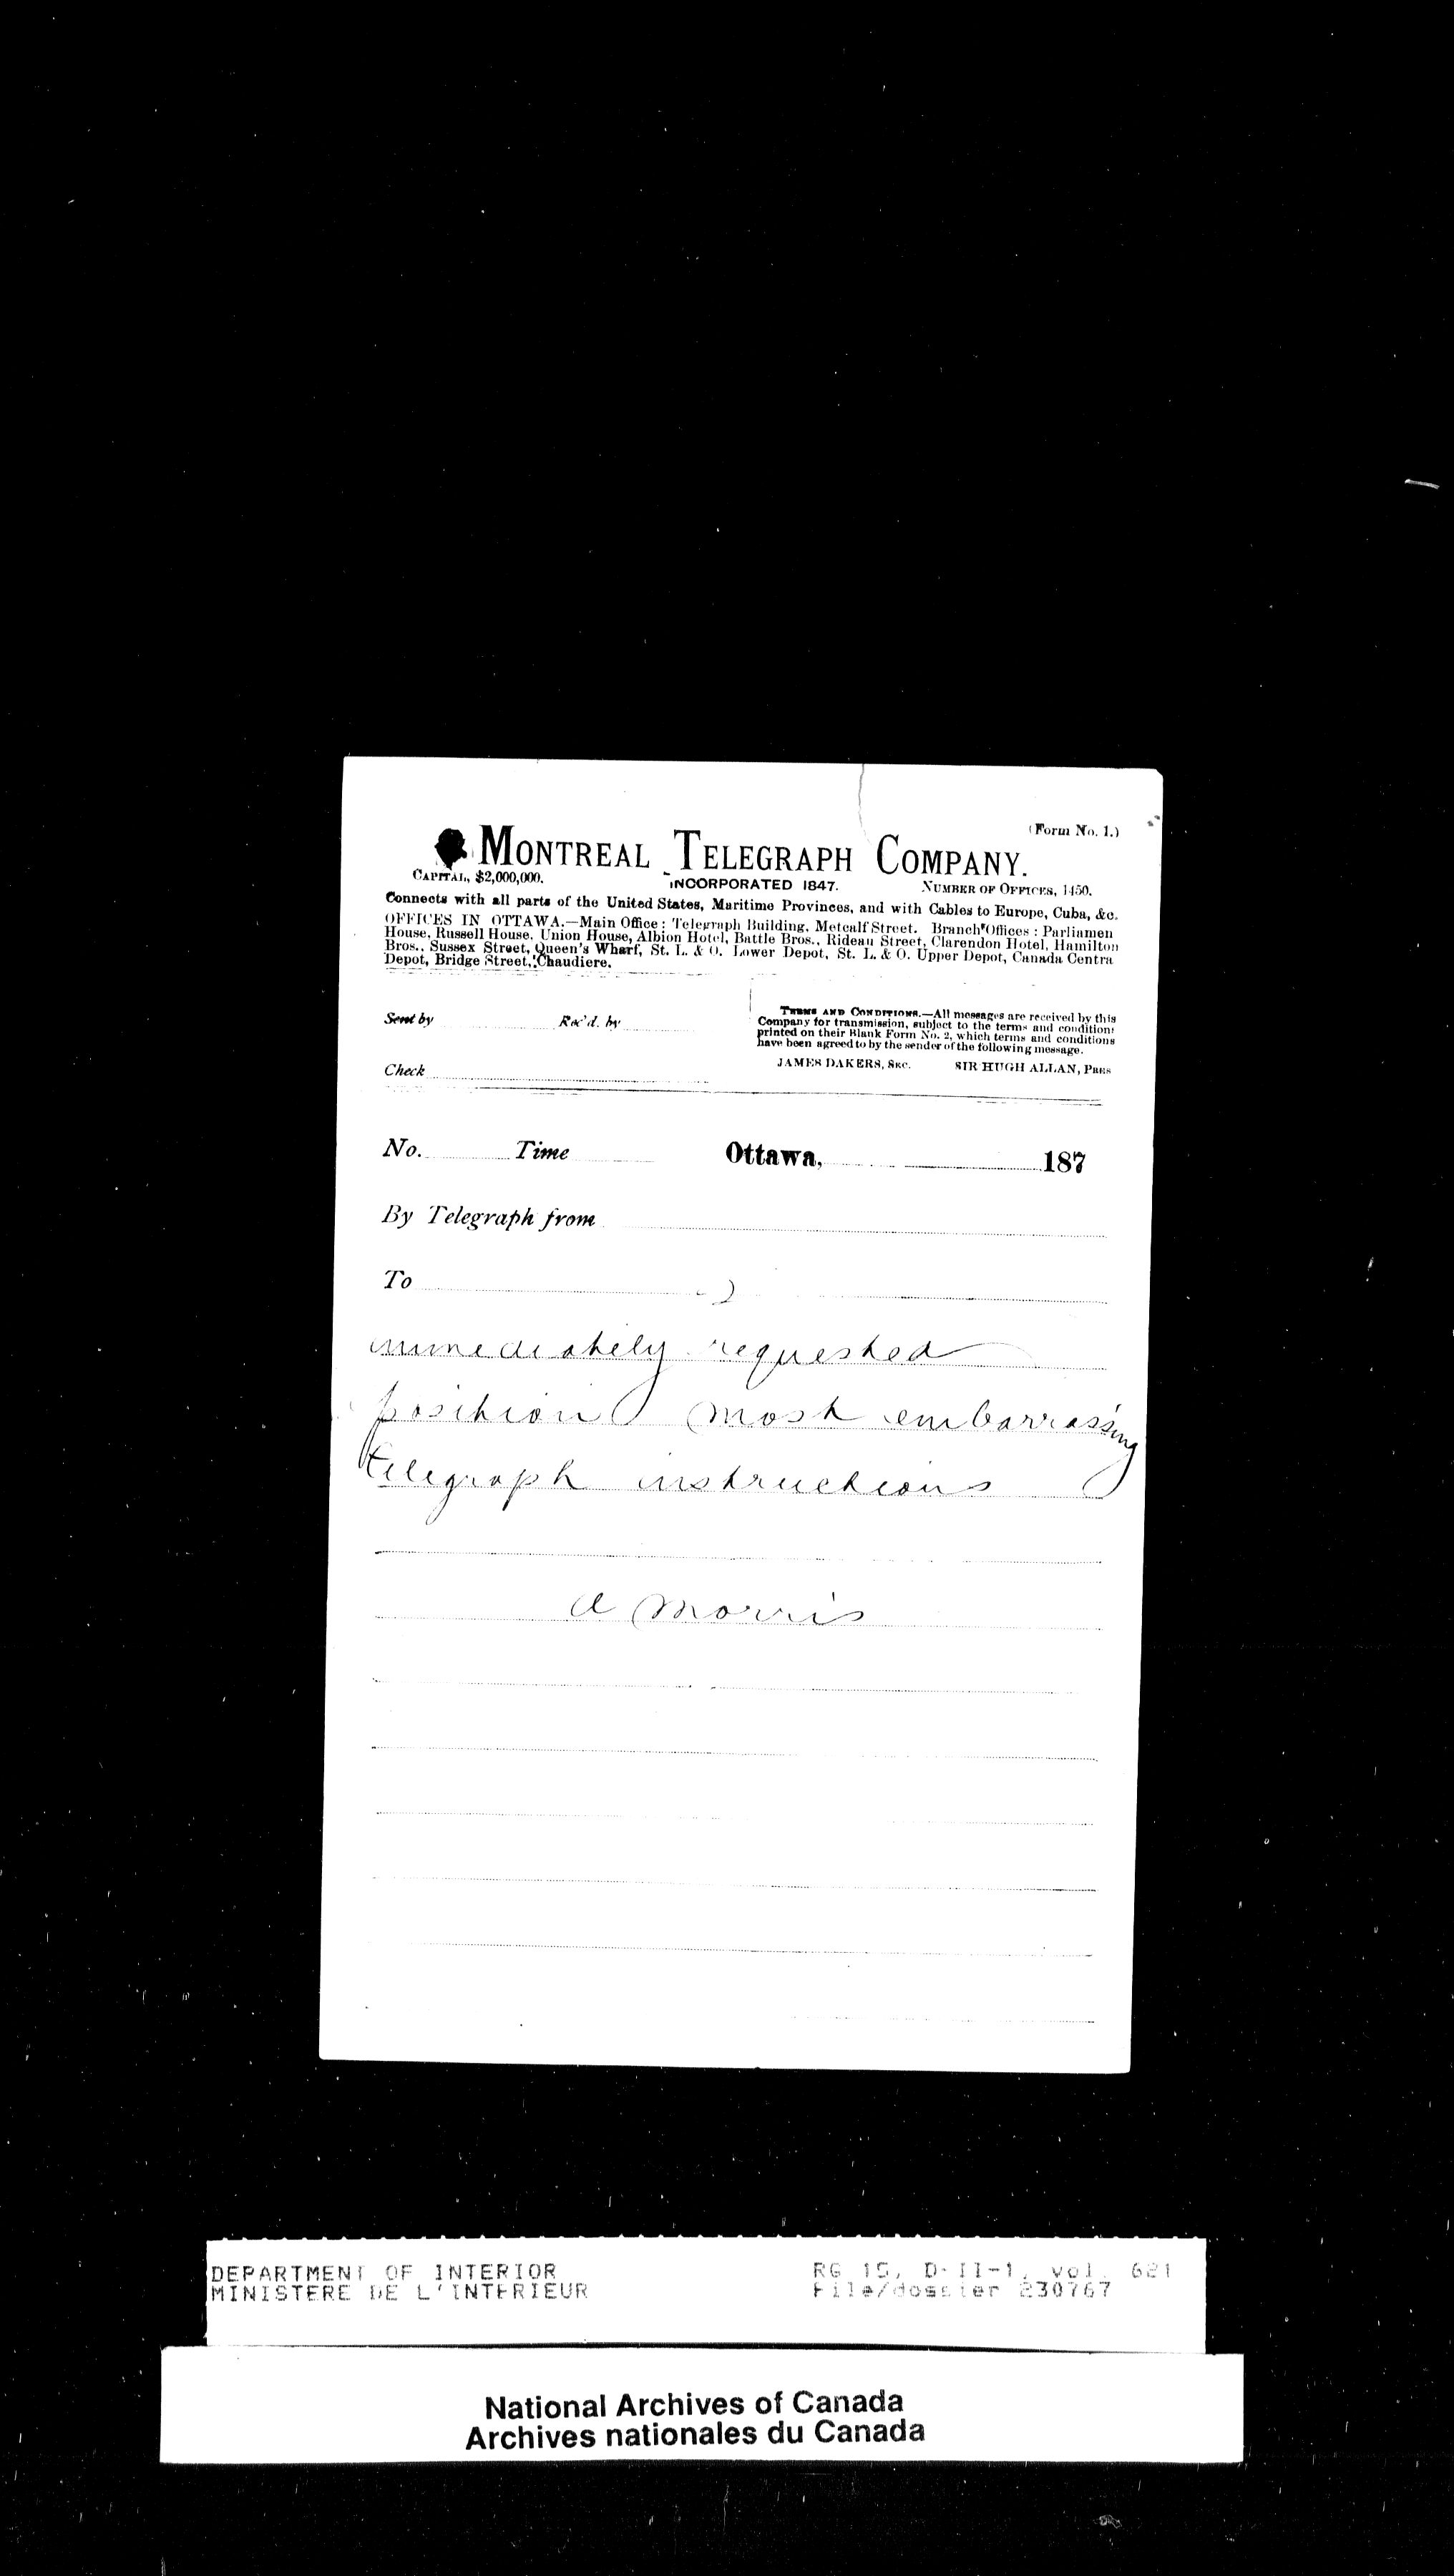 (Form No. 1.)
MONTREAL TELEGRAPH COMPANY.
CAPITAL, $2,000,000. INCORPORATED 1847. NUMBER OF OFFICES, 1450.
Connects with all parts of the United States, Maritime Provinces, and with Cables to Europe, Cuba, &c.
OFFICES IN OTTAWA.—Main Office: Telegraph Building, Metcalf Street. Branch Offices: Parliamen
House, Russell House, Union House, Albion Hotel, Battle Bros., Rideau Street, Clarendon Hotel, Hamilton
Bros., Sussex Street, Queen's Wharf, St. L. & O. Lower Depot, St. L. & O. Upper Depot, Canada Centra
Depot, Bridge Street, Chaudiere.
Sent by Rec'd. by
TERMS AND CONDITIONS.—All messages are received by this
Company for transmission, subject to the terms and conditions
printed on their Blank Form No. 2, which terms and conditions
have been agreed to by the sender of the following message.
Check
JAMES DAKERS, SEC. SIR HUGH ALLAN, PRES
No. Time Ottawa, 187
By Telegraph from
To
immediately requested
position most embarrassing
telegraph instructions
A Morris
DEPARTMENT OF INTERIOR RG 15, D-II-1, vol. 621
MINISTERE DE L'INTERIEUR File/dossier 230767
National Archives of Canada
Archives nationales du Canada